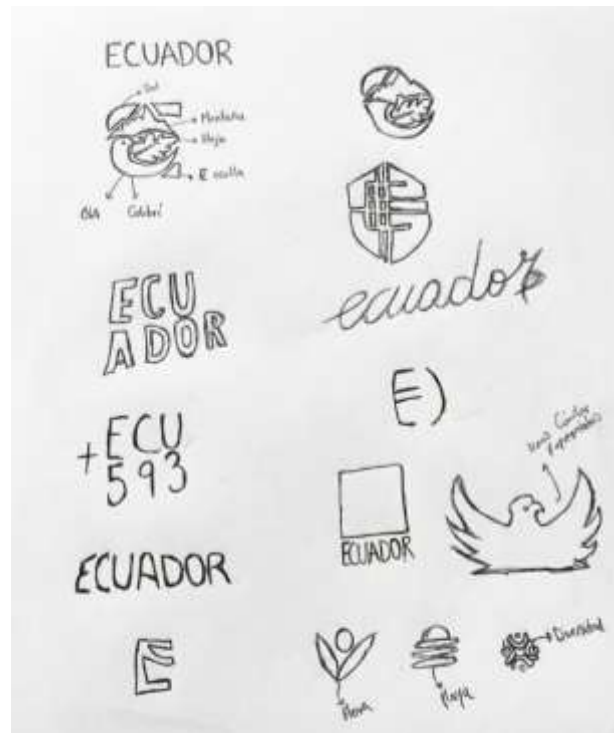 ECUADOR
Sol
Montaña
Hoja
E oculta
Ola
Colibrí
ECU
ADOR
ecuador
E)
+ECU
593
ECUADOR
ECUADOR
E
Flora
Playa
Diversidad